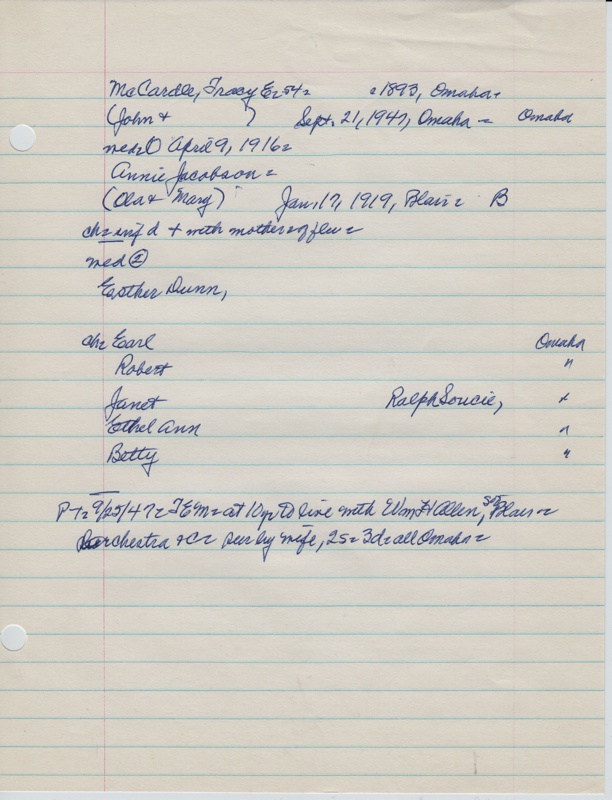 McCardle, Tracy E = 54 = = 1893, Omaha =
(John + ) Sept. 21, 1947, Omaha = Omaha
med = ① April 9, 1916 =
Annie Jacobson =
(Ola + Mary) Jan, 17, 1919, Blair = B
ch = inf d + with mother of flu =
med ②
Esther Dunn,
ch = Earl Omaha
Robert "
Janet Ralph Soucie, +
Ethel Ann "
Betty "
P + = 9/25/47 = TEM = at 10 yr to live with Wm H Allen, Blair =
orchestra + C = sur by wife, 2s = 3d = all Omaha =